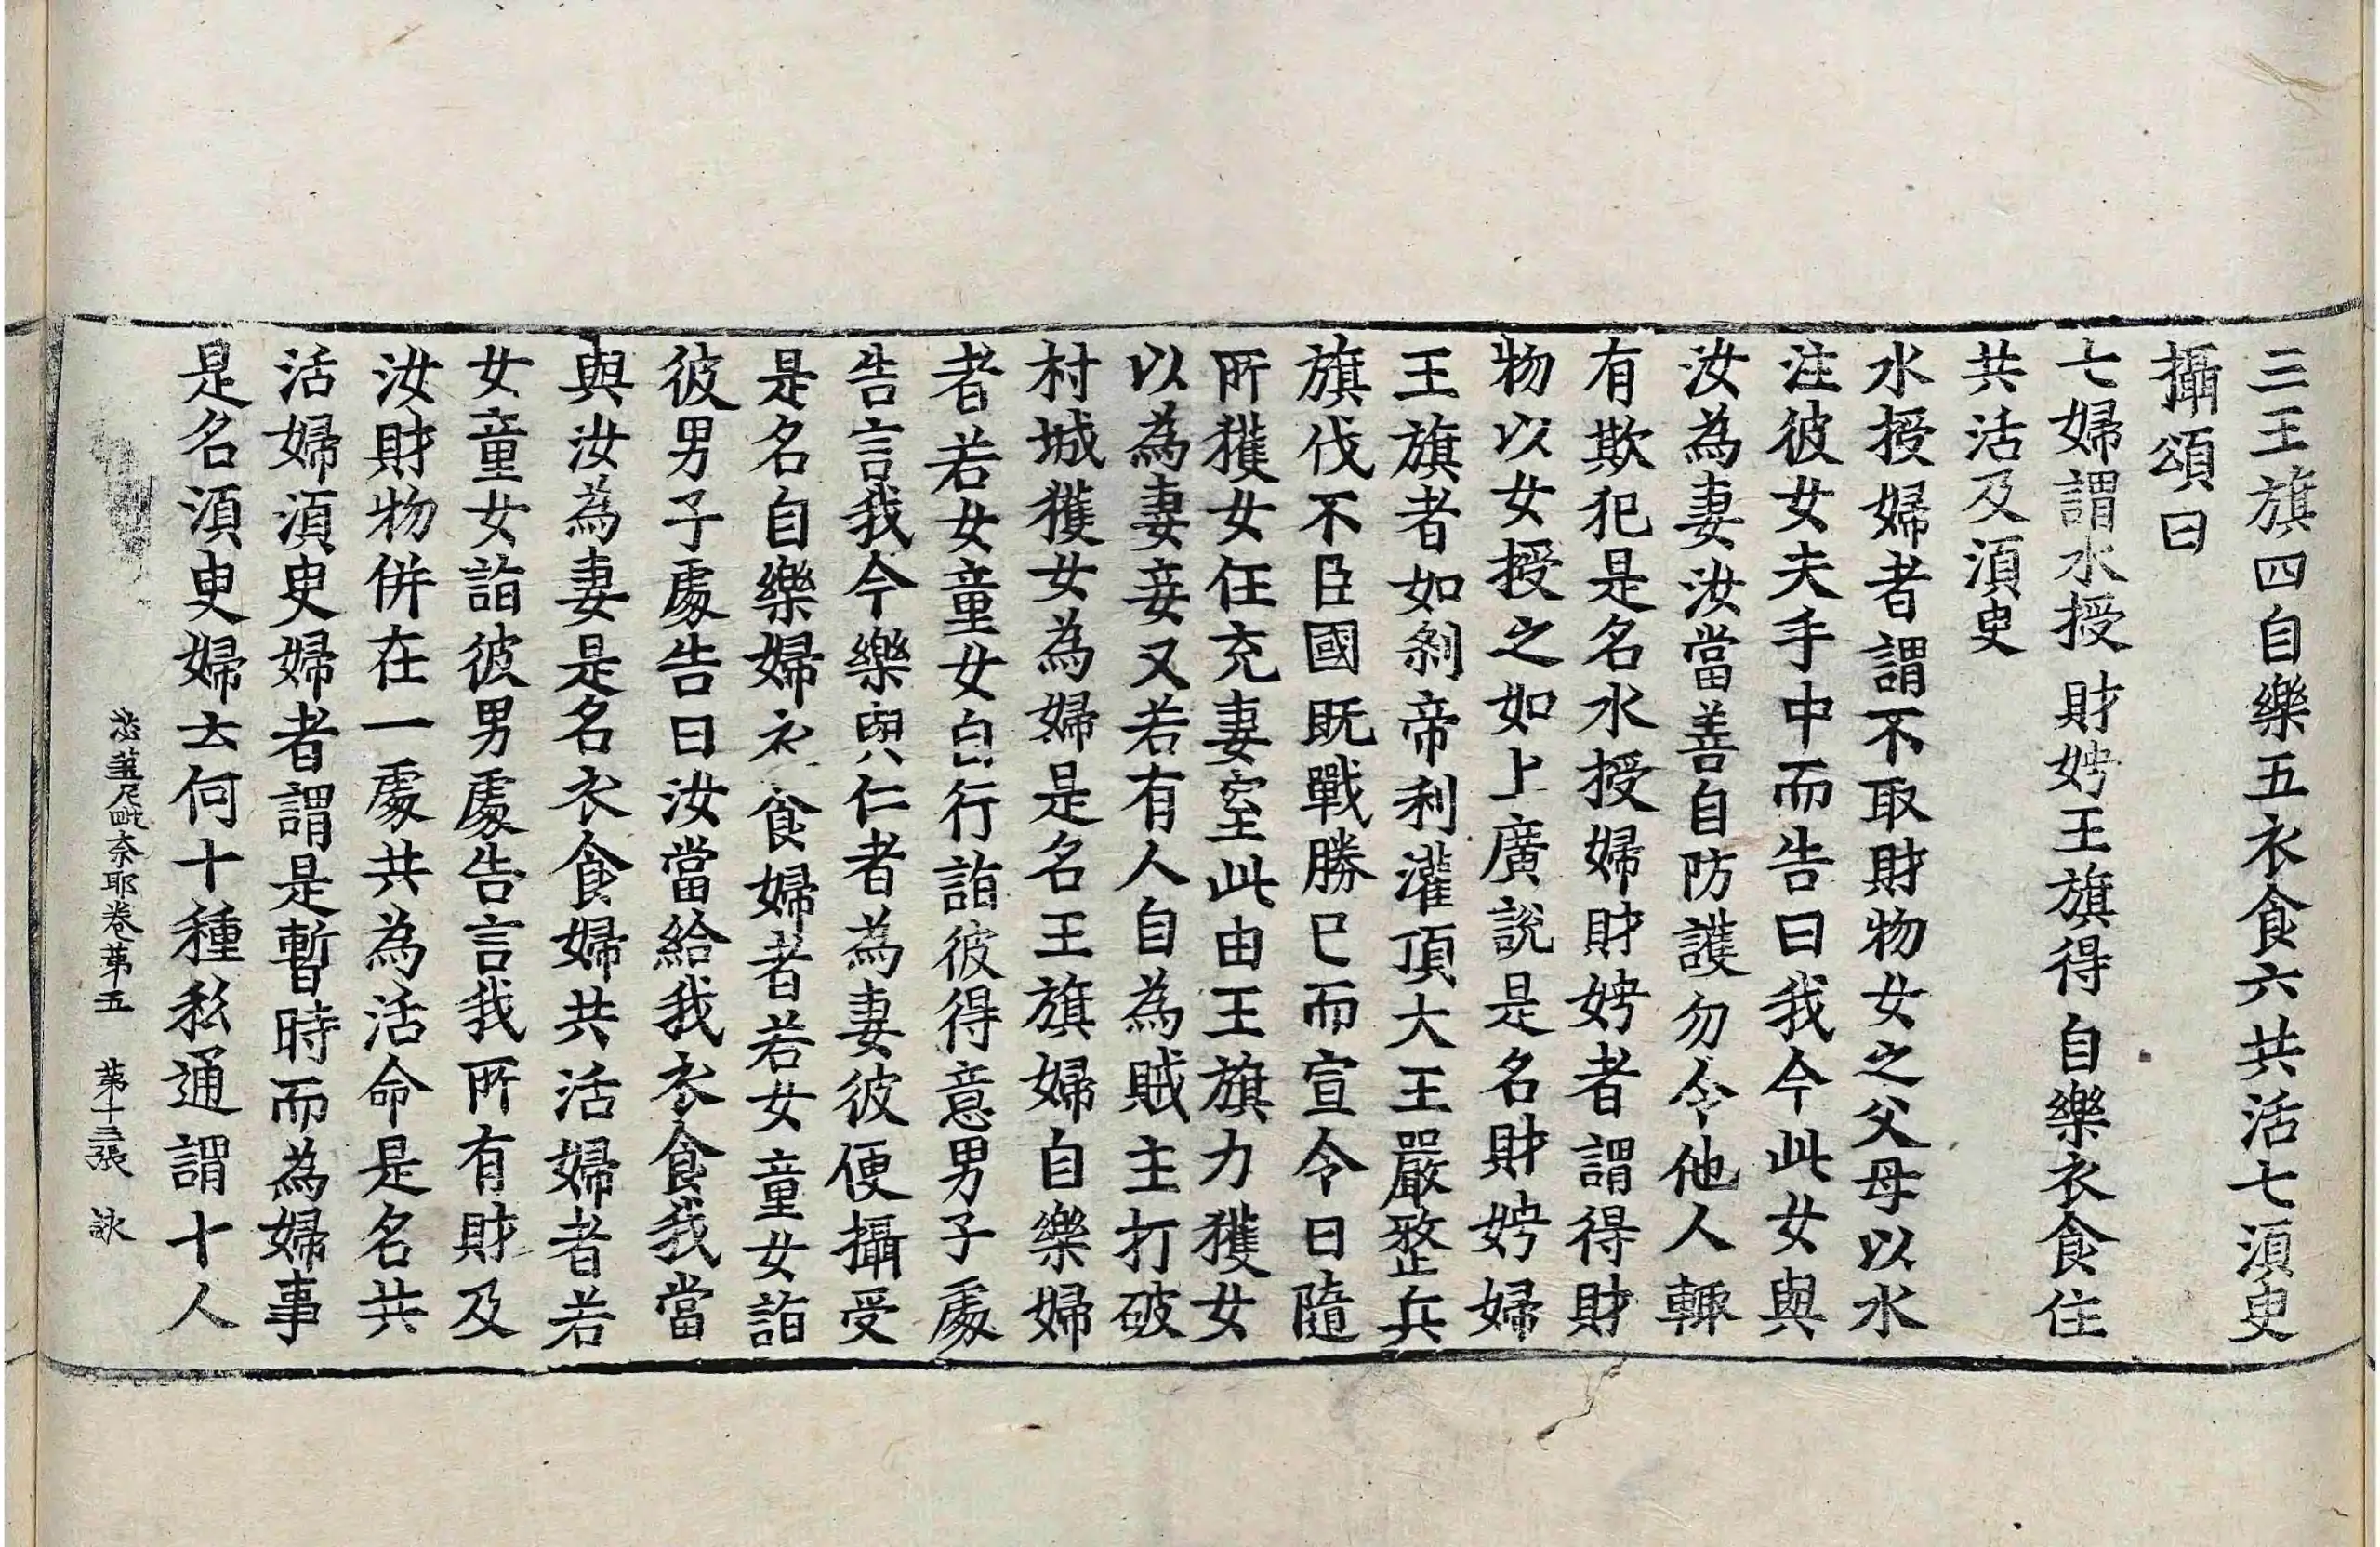 三王旗四自樂五衣食六共活七湏臾
攝頌曰
七婦謂水授 財娉王旗得 自樂衣食住
共活及湏臾
水授婦者謂不取財物女之父母以水
注彼女夫手中而告曰我今此女與
汝為妻汝當善自防護勿令他人輙
有欺犯是名水授婦財娉者謂得財
物以女授之如上廣說是名財娉婦
王旗者如刹帝利灌頂大王嚴整兵
旗伐不臣國既戰勝已而宣令曰隨
所獲女任充妻室此由王旗力獲女
以為妻妾又若有人自為賊主打破
村城獲女為婦是名王旗婦自樂婦
者若女童女自行詣彼得意男子處
告言我今樂與仁者為妻彼便攝受
是名自樂婦衣食婦者若女童女詣
彼男子處告曰汝當給我衣食我當
與汝為妻是名衣食婦共活婦者若
女童女詣彼男處告言我所有財及
汝財物併在一處共為活命是名共
活婦湏臾婦者謂是暫時而為婦事
是名湏臾婦云何十種私通謂十人
苾蒭尼毗奈耶卷苐五 苐十三張 詠